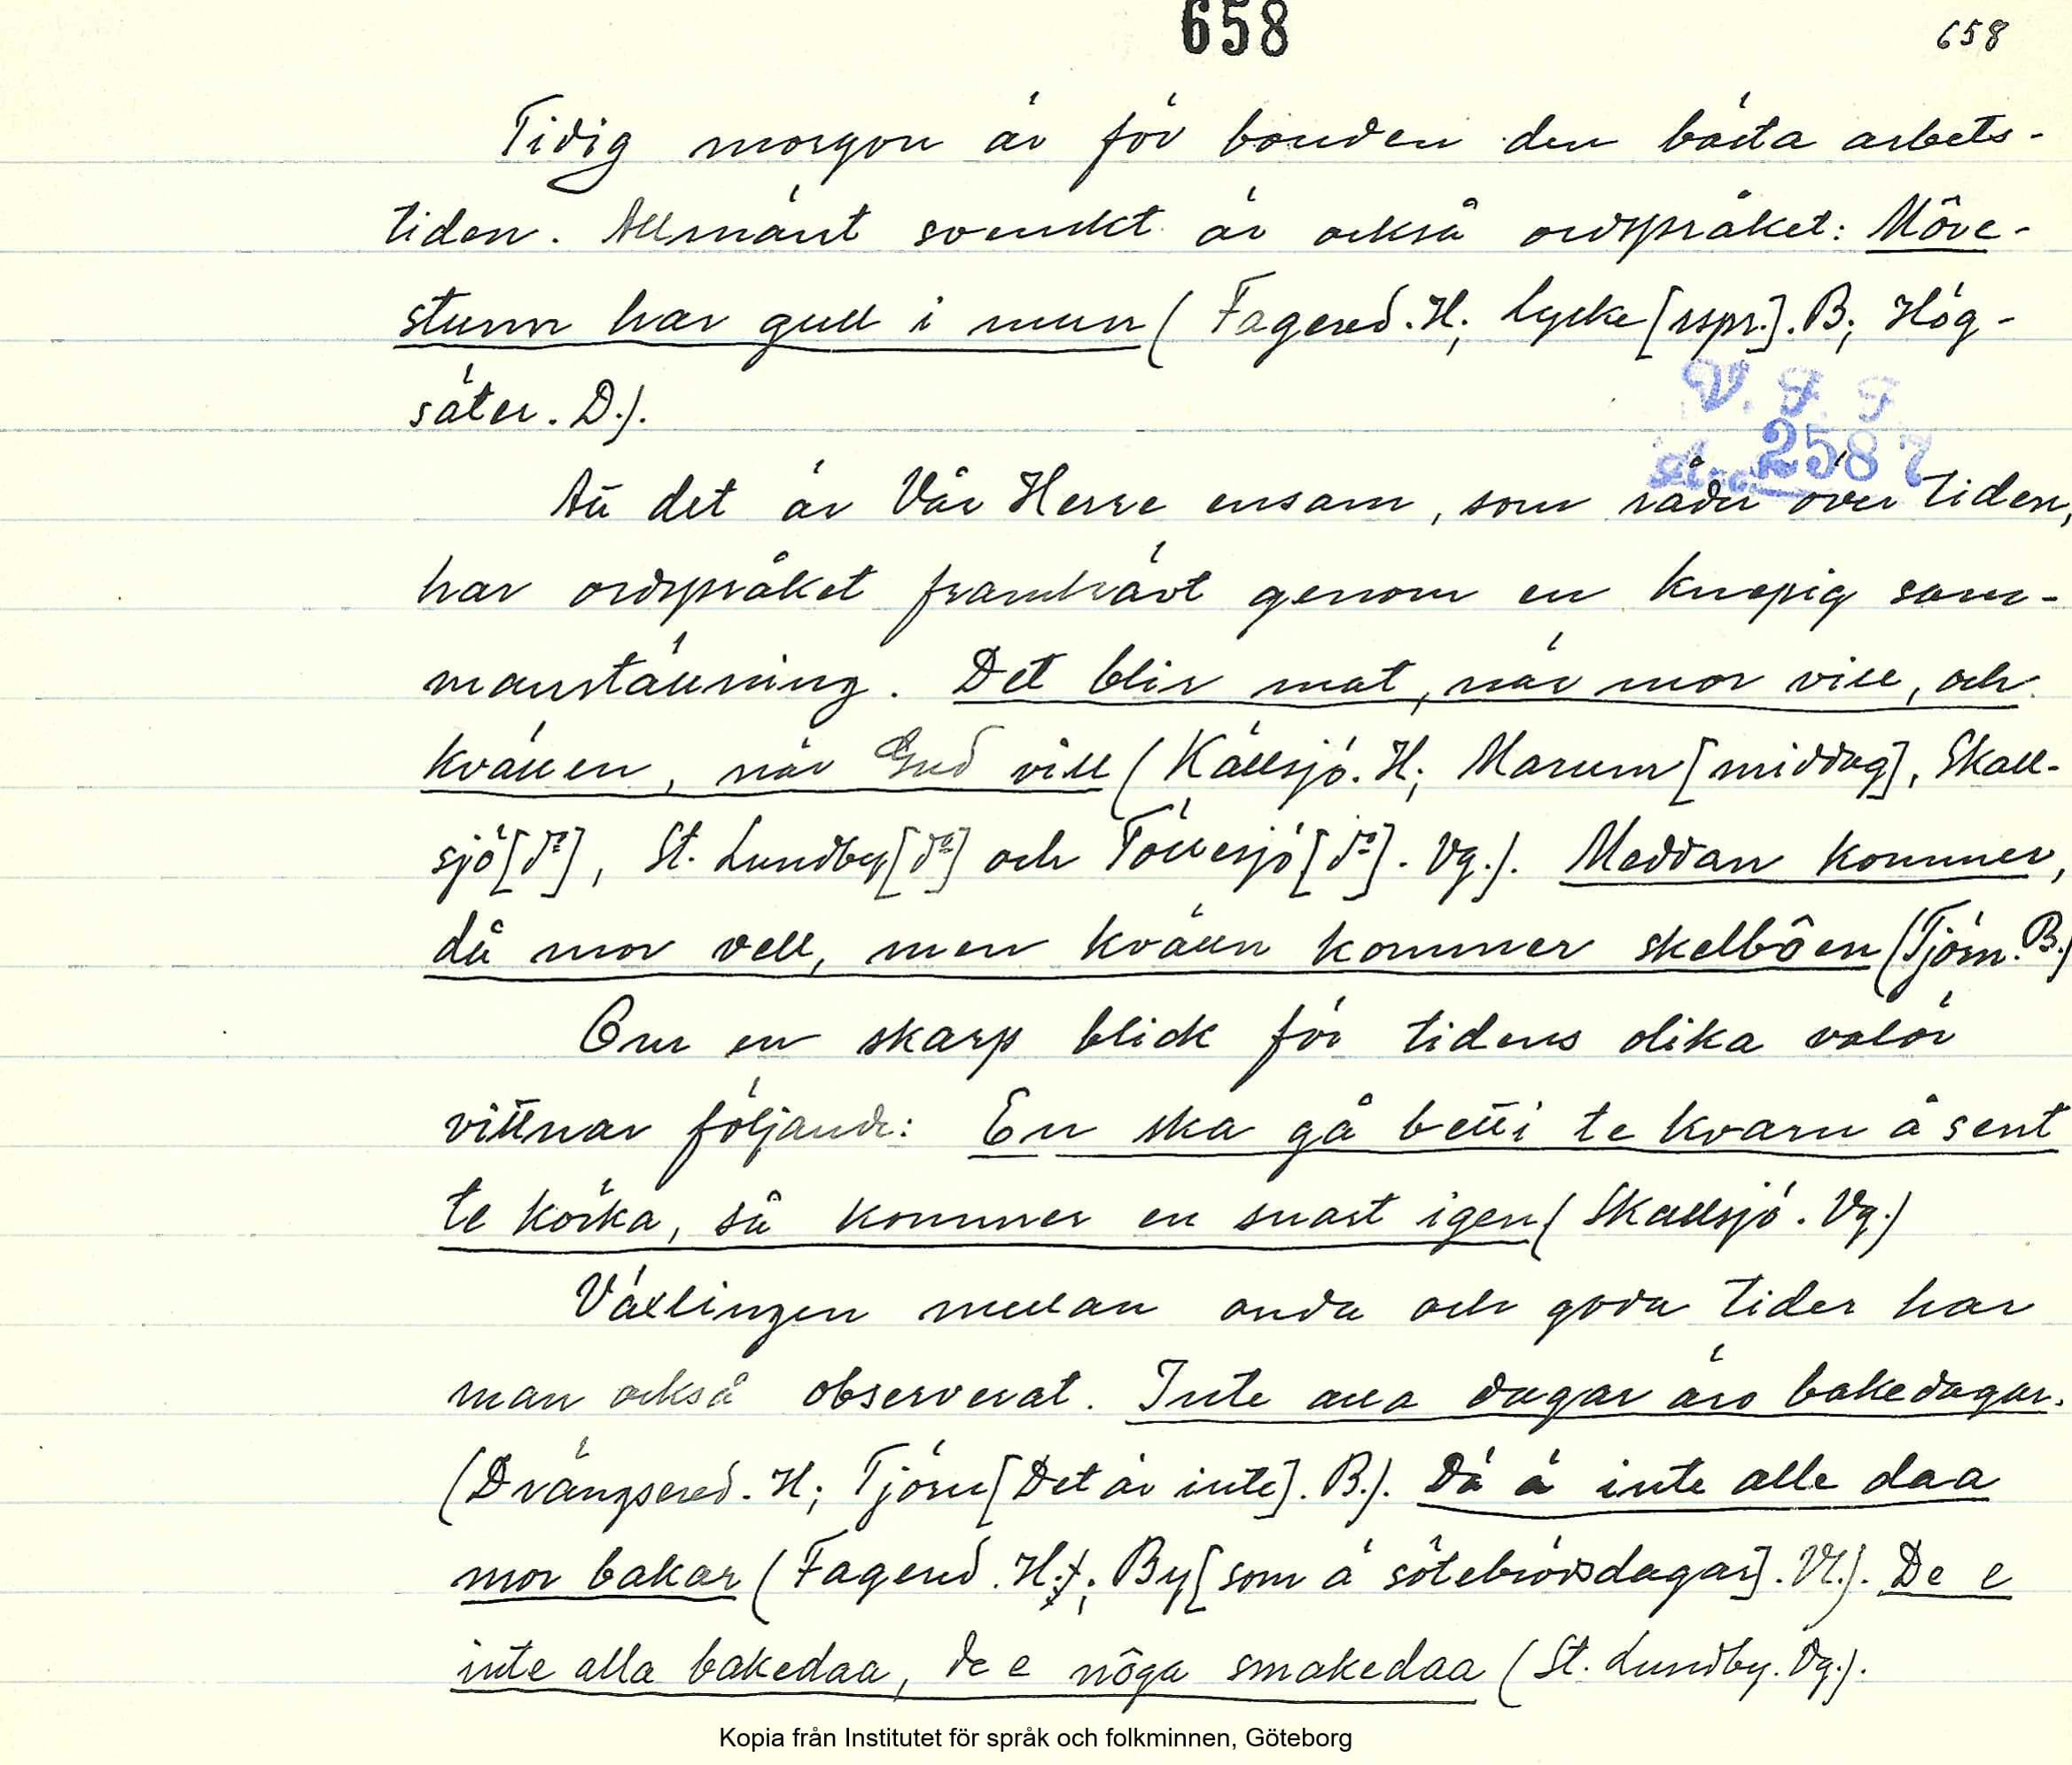 658
658
Tidig morgon är för bonden den bästa arbets-
tiden. Allmänt svenskt är också ordspråket: Môre-
stunn har gull i mun (Fagered. H; Lycke [rspr.]. B; Hög-
säter. D.).
V. F. F.
2587
Att det är Vår Herre ensam, som råder över tiden,
har ordspråket framhävt genom en knepig sam-
manställning. Det blir mat, när mor vill, och
kvällen, när Gud vill (Källsjö. H; Marum [middag], Skall-
sjö [do], St. Lundby [do] och Töllesjö [do]. Vg.). Meddan kommer,
då mor vell, men kvälln kommer skelbôen (Tjörn. B.)
Om en skarp blick för tidens olika valör
vittnar följande: En ska gå betti te kvarn å sent
te körka, så kommer en snart igen (Skallsjö. Vg.)
Växlingen mellan onda och goda tider har
man också observerat. Inte alla dagar äro bakedagar.
(Drängsered. H; Tjörn [Det är inte]. B.). Dä ä inte alle daa
mor bakar (Fagered. H.; By [som ä sötebrödsdagar]. Vl.). De e
inte alla bakedaa, de e nôga smakedaa (St. Lundby. Vg.).
Kopia från Institutet för språk och folkminnen, Göteborg